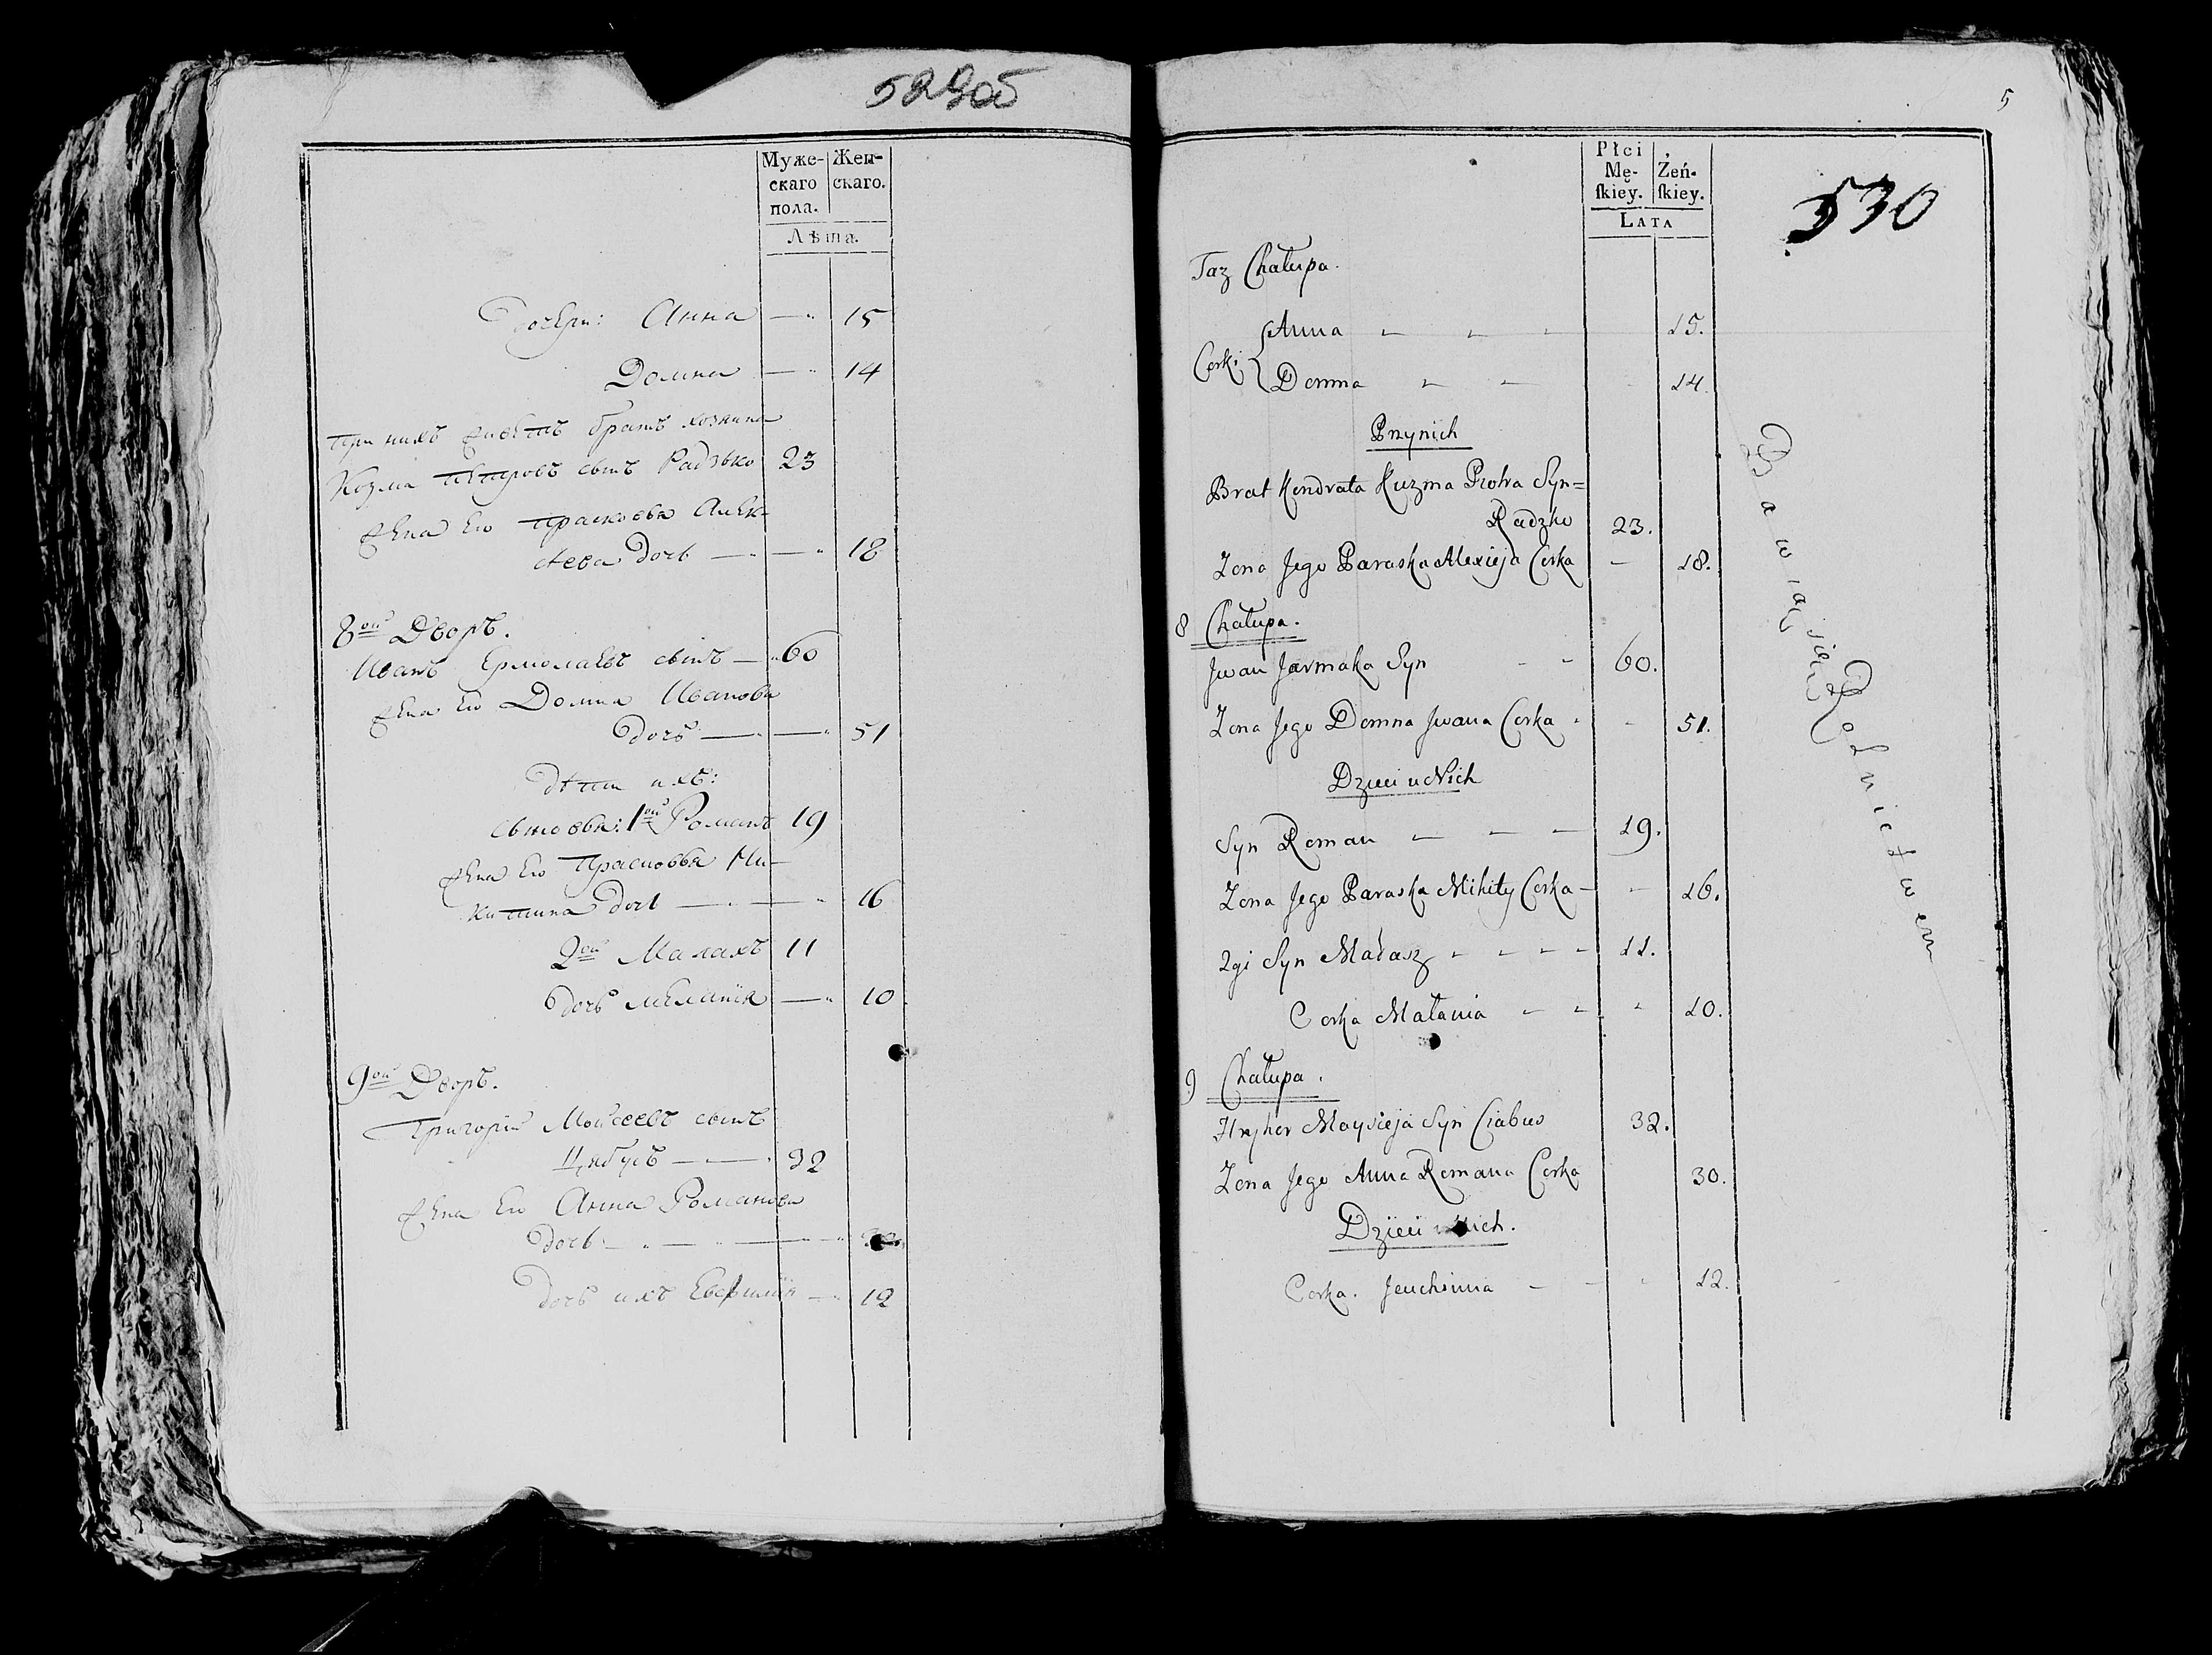 529 об
Муже-
скаго
пола.
Жен-
скаго.
Лѣта.
Дочери: Анна — 15
Домна — 14
при нихъ живетъ братъ хозяина
Козма Петровъ сынъ Радзько 23
жена Его Прасковья Алек-
сѣева Дочь — — 18
8ой Дворъ.
Иванъ Ермолаевъ сынъ — 60
жена Его Домна Иванова
Дочь — — 51
Дѣти ихъ:
сыновья: 1ой Романъ 19
жена Его Прасковья Ни-
китина Дочь — — 16
2ой Малахъ 11
Дочь Меланія — 10
9ой Дворъ.
Григорій Мойсеевъ сынъ
Цябусъ — 32
жена Его Анна Романова
Дочь — —
Дочь ихъ Евфимія — 12
5
530
Płci
Mę-
skiey.
Żeń-
skiey.
LATA
Taz Chałupa.
Corki { Anna 15.
Domna 14.
Przynich
Brat Kondrata Kuzma Piotra Syn=
Radzko 23.
Zona Jego Paraska Alexieja Corka — 18.
8 Chałupa.
Jwan Jarmaka Syn 60.
Zona Jego Domna Jwana Corka 51.
Dzieci u Nich
Syn Roman 19.
Zona Jego Paraska Mikity Corka — 16.
2gi Syn Małasz 11.
Corka Małania 10.
9 Chałupa.
Hryhor Moysieja Syn Ciabus 32.
Zona Jego Anna Romana Corka 30.
Dzieci u Nich.
Corka. Jeuchimia 12.
Bawią się Rolnictwem